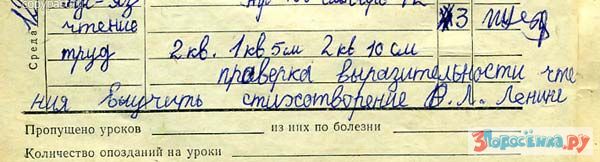 чтение 3
Среда
труд 2 кв. 1 кв 5 м 2 кв 10 см
праверка выразительности чте
ния выучить стихотворение В. Л. Ленине
Пропущено уроков из них по болезни
Количество опозданий на уроки
3Поросёнка.ру